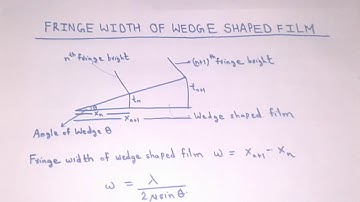 FRINGE WIDTH OF WEDGE SHAPED FILM
nth fringe bright
(n+1)th fringe bright
tn
tn+1
θ
xn
xn+1
Wedge shaped film
Angle of Wedge θ
Fringe width of wedge shaped film ω = xn+1 - xn
ω = λ / 2μ sin θ